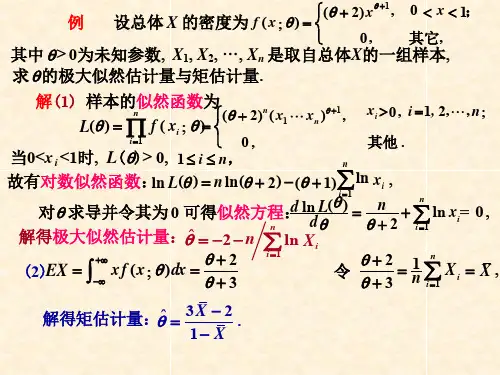 例 设总体 X 的密度为 f ( x ; θ) = { (θ + 2) x^{θ+1} , 0 < x < 1;
0 , 其它,
其中 θ > 0为未知参数, X₁, X₂, ⋯, Xₙ 是取自总体X的一组样本,
求 θ 的极大似然估计量与矩估计量.
解(1) 样本的似然函数为
L(θ) = ∏_{i=1}^{n} f ( x_i ; θ) = { (θ + 2)^n (x₁ ⋯ xₙ)^{θ+1} , x_i > 0 , i = 1, 2, ⋯, n ;
0 , 其他 .
当0<x_i <1时, L(θ) > 0, 1 ≤ i ≤ n,
故有对数似然函数: ln L(θ) = n ln(θ + 2) − (θ + 1) ∑_{i=1}^{n} ln x_i ,
对θ 求导并令其为 0 可得似然方程: d ln L(θ) / dθ = n / (θ + 2) + ∑_{i=1}^{n} ln x_i = 0 ,
解得极大似然估计量: θ̂ = −2 − n / ∑_{i=1}^{n} ln X_i
(2) EX = ∫_{−∞}^{+∞} x f ( x ; θ) dx = (θ + 2) / (θ + 3) 令 (θ + 2) / (θ + 3) = 1/n ∑_{i=1}^{n} X_i = X̄ ,
解得矩估计量: θ̂ = (3 X̄ − 2) / (1 − X̄) .